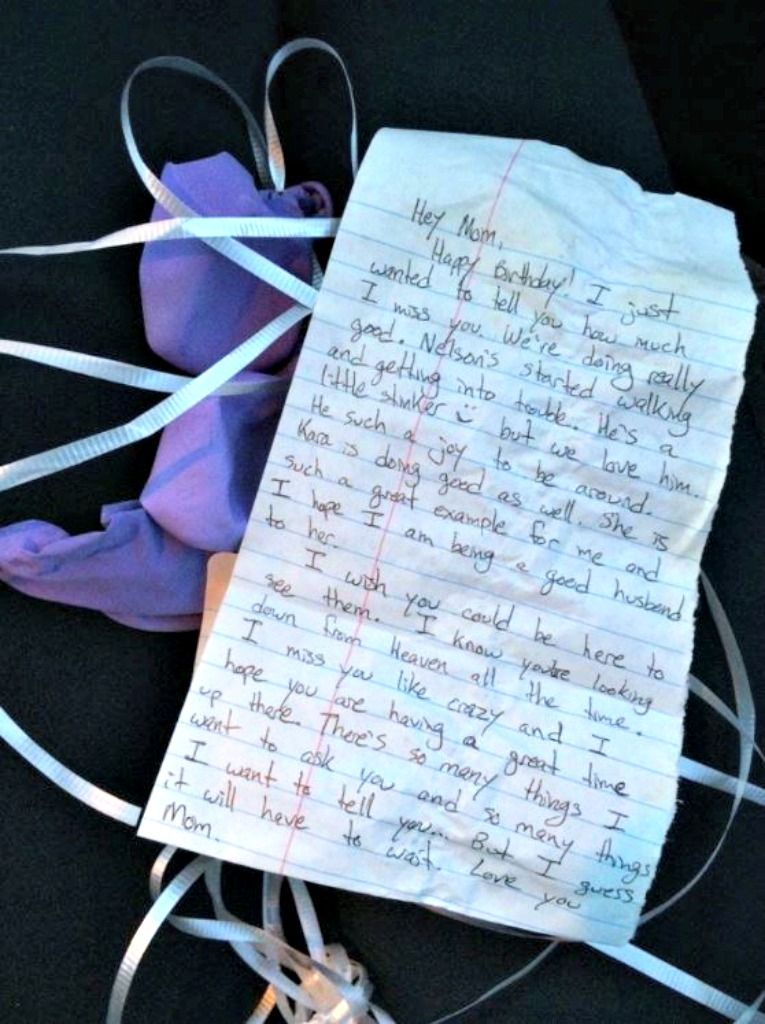 Hey Mom,
Happy Birthday! I just
wanted to tell you how much
I miss you. We're doing really
good. Nelson's started walking
and getting into trouble. He's a
little stinker :) but we love him.
He such a joy to be around.
Kara is doing good as well. She is
such a great example for me and
I hope I am being a good husbend
to her.
I wish you could be here to
see them. I know you're looking
down from Heaven all the time.
I miss you like crazy and I
hope you are having a great time
up there. There's so many things I
want to ask you and so many things
I want to tell you... But I guess
it will have to wait. Love you
Mom.